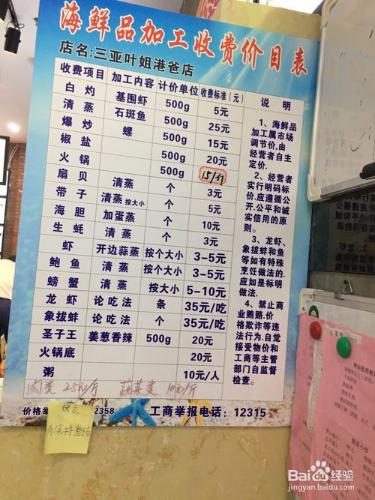 海鲜品加工收费价目表
店名:三亚叶姐港爸店
收费项目 加工内容 计价单位 收费标准(元) 说明
白灼 基围虾 500g 5元
清蒸 石斑鱼 500g 25元
爆炒 螺 500g 15元
椒盐 500g 20元
火锅 500g 15/斤
扇贝 清蒸 个 3元
带子 清蒸按大小 个 5元
海胆 加蛋蒸 个 10元
生蚝 清蒸 个 3元
虾 开边蒜蒸 按个大小 3–5元
鲍鱼 清蒸 按个大小 3–5元
螃蟹 清蒸 按个大小 5–10元
龙虾 论吃法 条 35元/吃
象拔蚌 论吃法 个 35元/吃
圣子王 姜葱香辣 500g 20元
火锅底 20元
粥 10元/人
1、海鲜品
加工属市场
调节价,由
经营者自主
定价.
2、经营者
实行明码标
价,应遵循公
开.公平和诚
实信用的原
则。
3、龙虾、
象拔蚌和鱼
等如有特殊
烹饪做法的.
应如是标明
做法.
4、禁止商
业贿赂.价
格欺诈等违
法行为.自觉
接受物价和
工商等主管
部门自监督
检查。
25元/斤 蔬菜类
价格举 2358 工商举报电话：12315
Baidu经验
jingyan.baidu.com